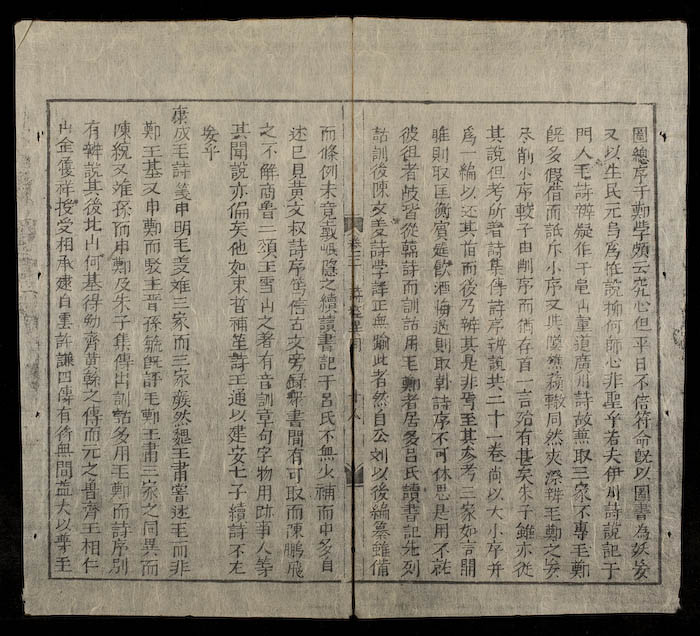 圖總序于鄭學頗云究心但平日不信符命旣以圖書為妖妄
又以生民元鳥為怪說抑何師心非聖乎若夫伊川詩說記于
門人毛詩辨疑作于龜山董逌廣川詩故兼取三家不專毛鄭
旣多假借而詆斥小序又與樵轍同然夾漈辨毛鄭之妄
尽削小序較于由刪序而猶存首一言殆有甚矣朱子雖亦從
其說但考所著詩集傳詩序辨說共二十一卷尚以大小序并
為一編以还其旧而後乃辨其是非焉至其参考三家如言關
雎則取匡衡賓筵飲酒悔過則取韓詩序不可休思是用不就
彼徂者岐皆從韓詩而訓詁用毛鄭者居多呂氏讀書記先列
詁訓後陳文義詩學詳正無踰此者然自公刘以後編纂雖備
卷三 詩經異同 廿八
而條例未竟戴岷隱之續讀書記于呂氏不無少補而中多自
述已見黃文叔詩序篤信古文旁録羣書間有可取而陳鵬飛
之不解商魯二頌王雪山之著有音訓章句字物用跡事人等
其聞說亦偏矣他如束晳補笙詩王通以建安七子續詩不尤
妄乎
康成毛詩箋申明毛義难三家而三家廢然魏王肅嘗述毛而非
鄭王基又申鄭而駁王晋孫毓旣評毛鄭王肅三家之同異而
陳統又难孫而申鄭及朱子集傳出訓詁多用毛鄭而詩序別
有辨說其後北山何基得勉齊黃榦之傳而元之魯齊王相仁
山金履祥授受相承逮白雲許謙四傳有術無間盖大以畢至